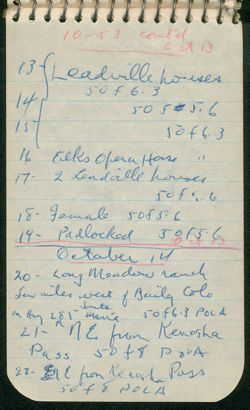 10-53 cont'd
Oct 13
13 Leadville houses
50 of 6.3
14 50 5.6
15 50 of 6.3
16 Elks Opera House "
17- 2 Leadville houses
50 of 5.6
18- Female 50 f 5.6
19- Padlocked 50 f 5.6
October 14
20- Long Meadow ranch
few miles west of Baily Colo
on Hwy 285 50 f 6.3 POLA
21- NE from Kenosha
Pass 50 f 8 POLA
22- NE from Kenosha Pass
50 f 8 POLA